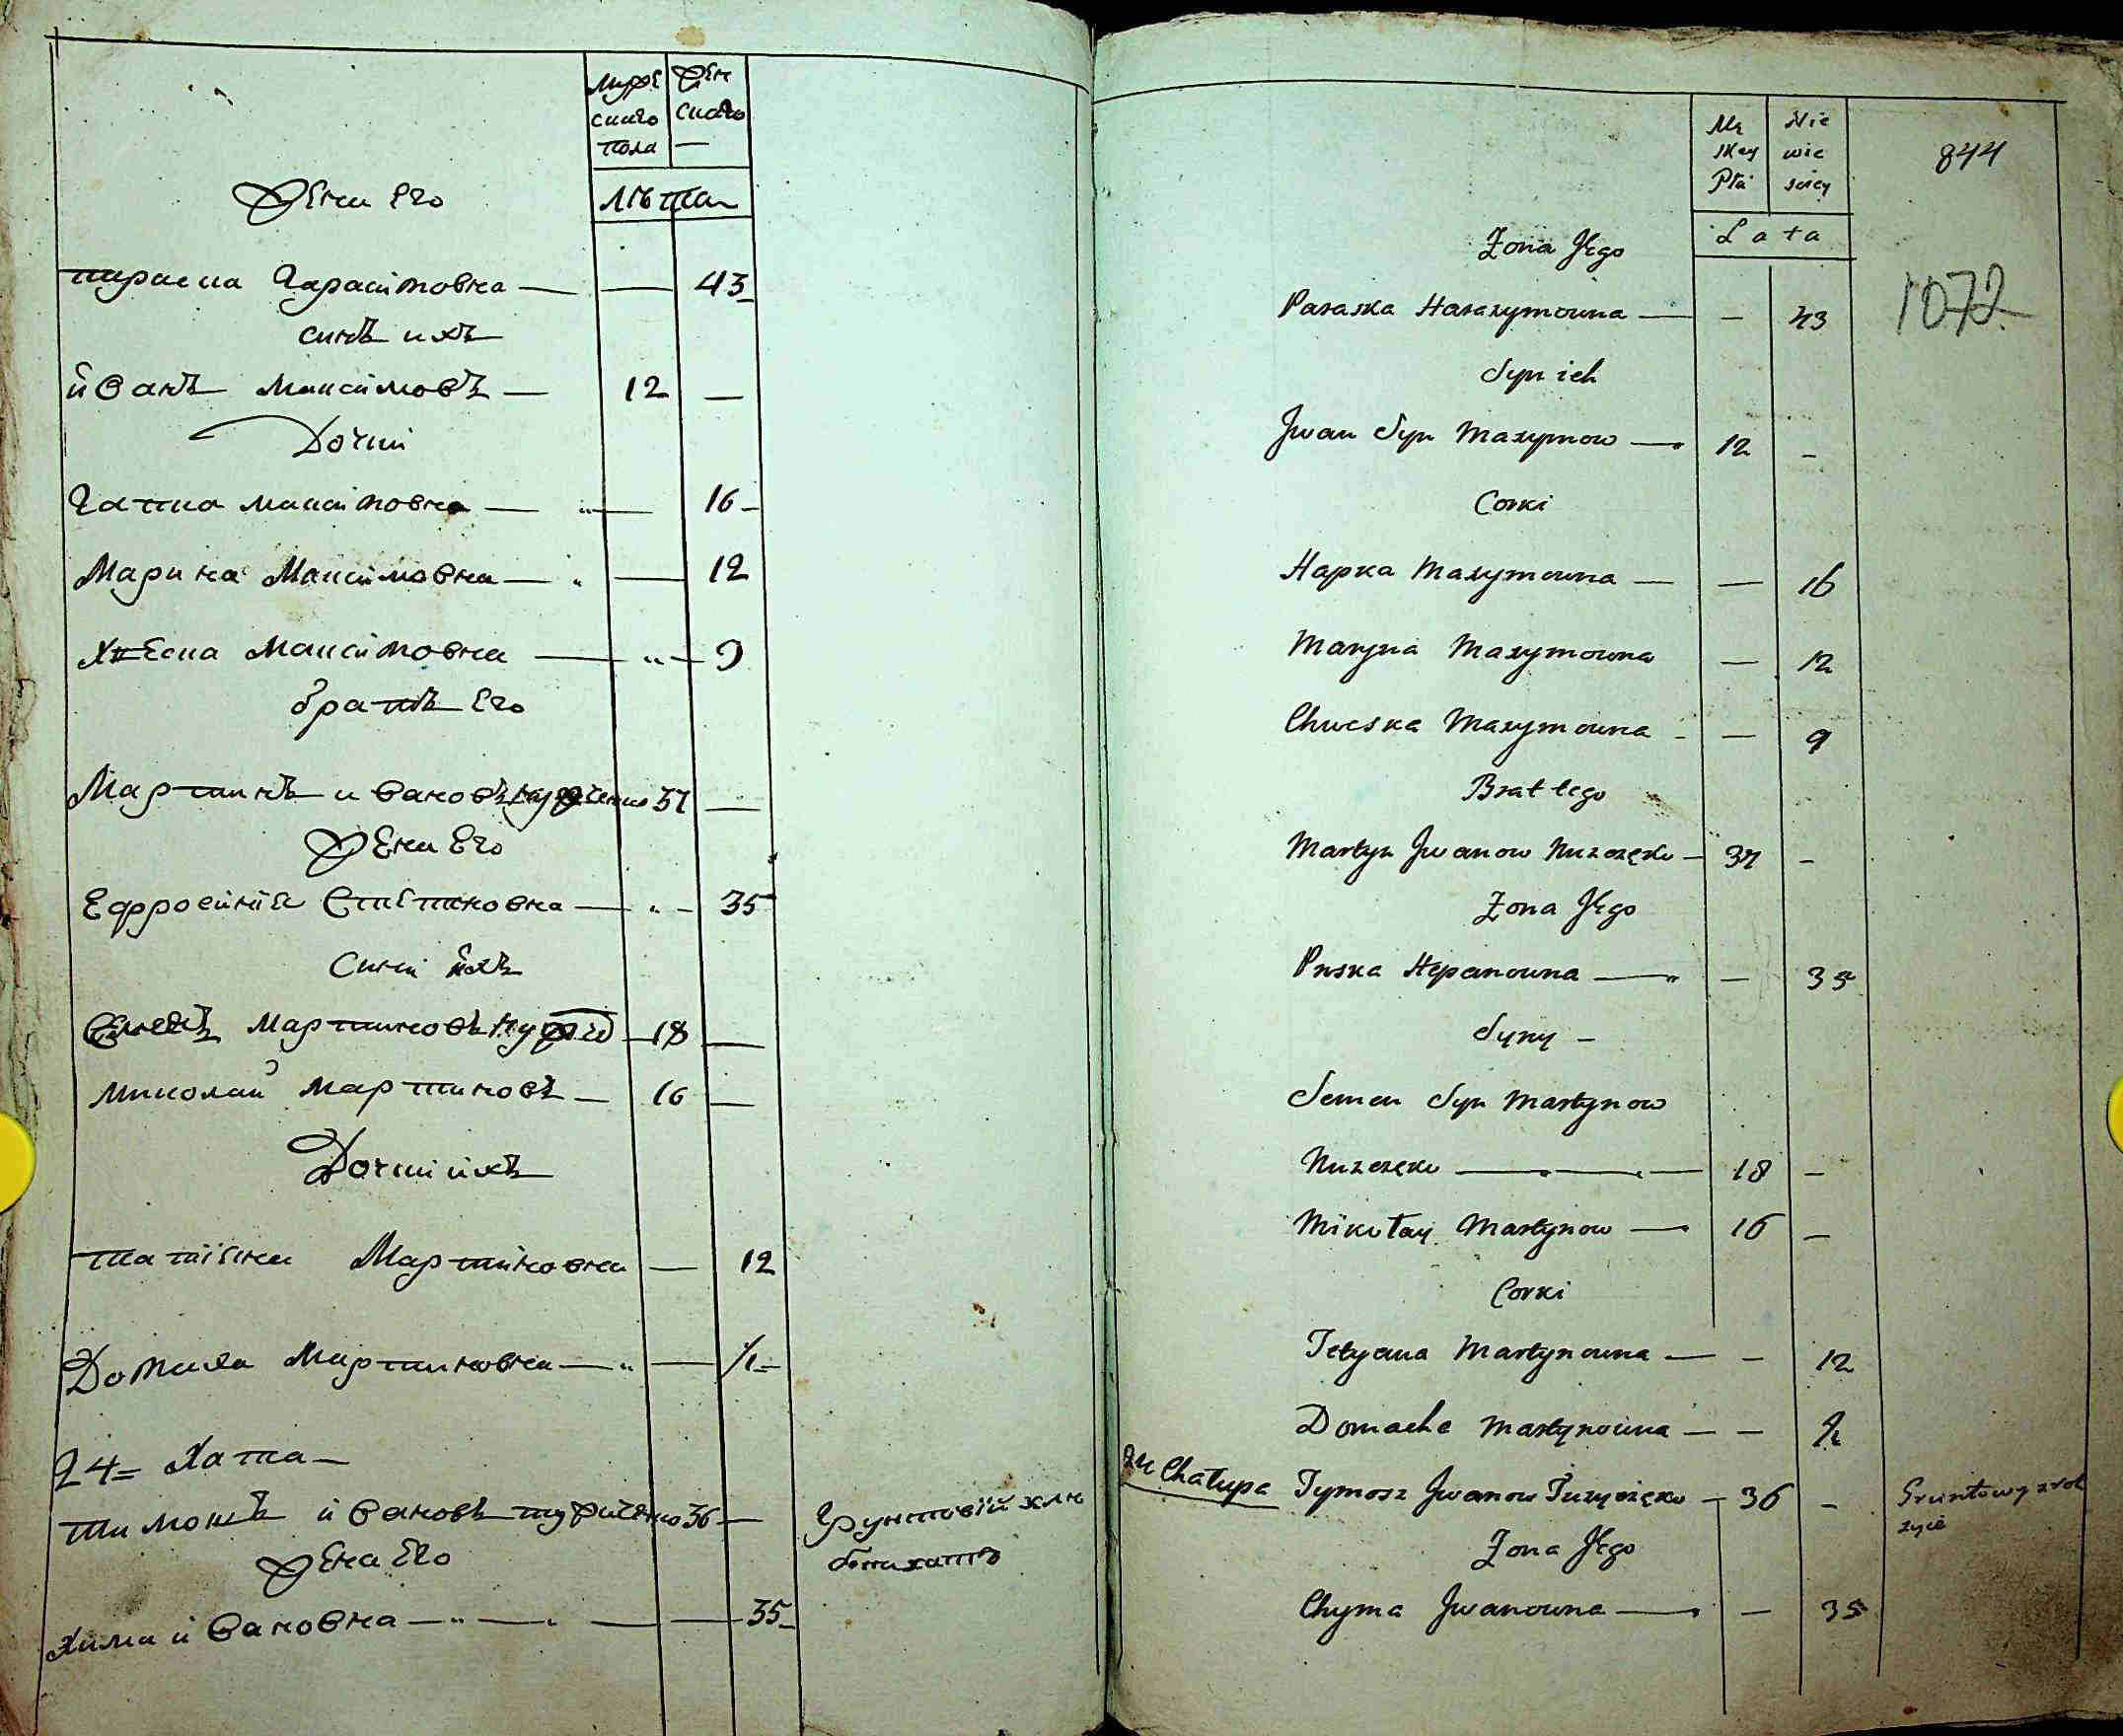 Мужескаго пола
Женскаго —
Лѣта
Жена Его
параска Гарасимовна — — 43
синъ ихъ
иванъ Максимовъ — 12 —
Дочки
Гапка максимовна — — 16
Марина Максимовна — — 12
Хвеска Максимовна — — 9
братъ Его
Мартинъ ивановъ 37 —
Жена Его
Ефросинія Степановна — — 35
Сини ихъ
Семенъ Мартиновъ — 18 —
миколай Мартиновъ — 16 —
Дочки ихъ
татіяна Мартиновна — 12
Домаха Мартиновна — —
24 = Хата —
тимошъ ивановъ 36 — Грунтовій
Жена Его
Хима ивановна — — 35
844
1072
Męzkey Płci
Niewieściey
Lata
Zona Jego
Paraska Harasymowna — — 43
Syn ich
Jwan Syn Maxymow — 12 —
Corki
Hapka Maxymowna — — 16
Maryna Maxymowna — 12
Chweska Maxymowna — — 9
Brat tego
Martyn Jwanow — 37 —
Zona Jego
Pryska Stepanowna — — 35
Syny —
Semen Syn Martynow
— 18 —
Mikołay Martynow — 16 —
Corki
Tetyana Martynowna — — 12
Domacha Martynowna — —
24 Chałupa Tymosz Jwanow — 36 — Gruntowy
Zona Jego
Chyma Jwanowna — — 35